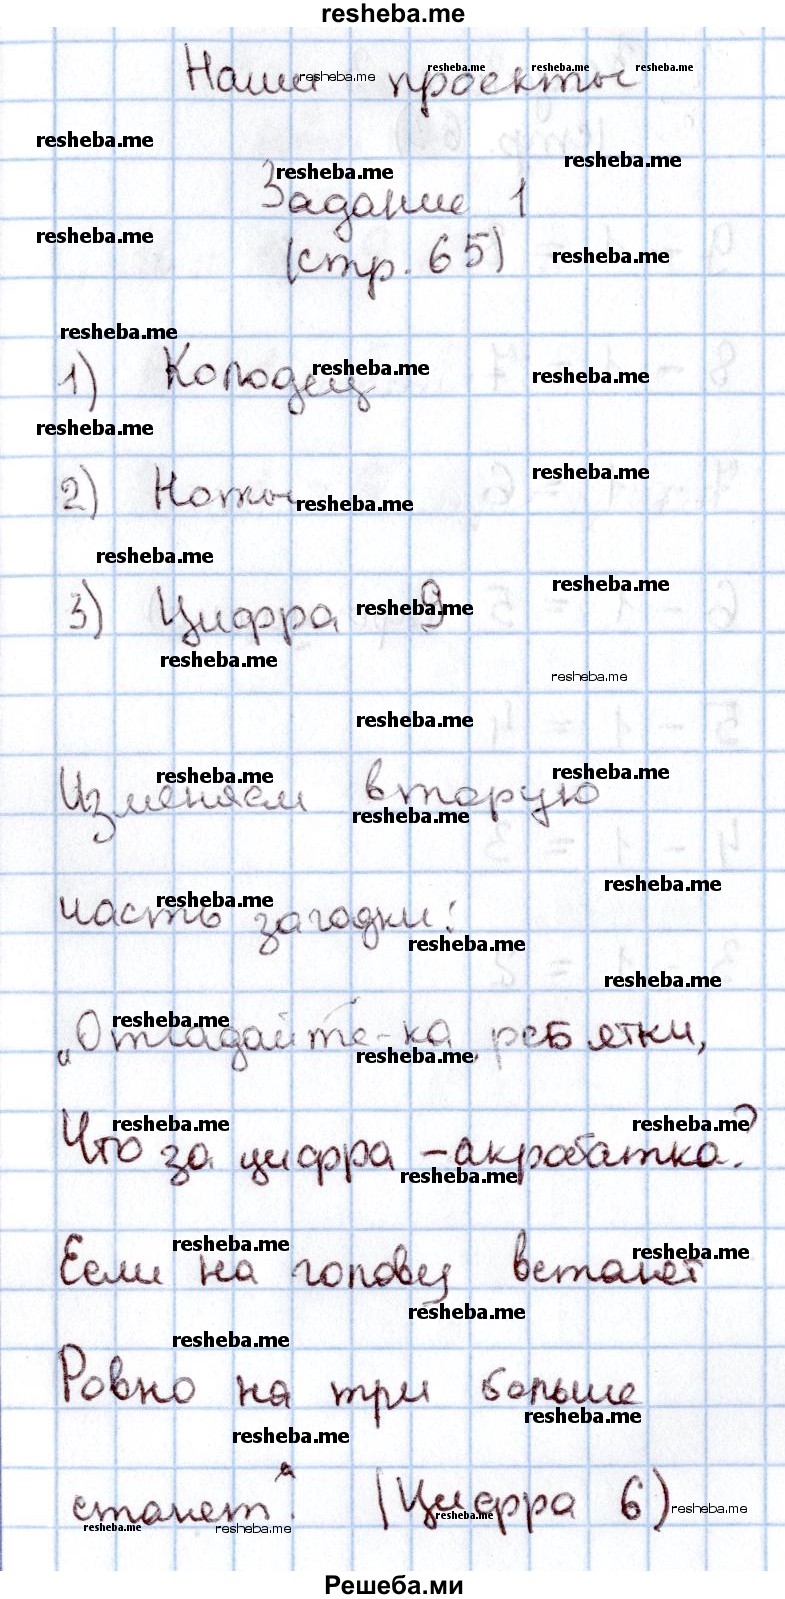 resheba.me
Наши проекты
Задание 1
(стр. 65)
1) Колодец
2) Ноты
3) Цифра 9
Изменяем вторую
часть загадки:
„Отгадайте-ка, ребятки,
Что за цифра - акробатка?
Если на голову встанет
Ровно на три больше
станет“. (Цифра 6)
Решеба.ми